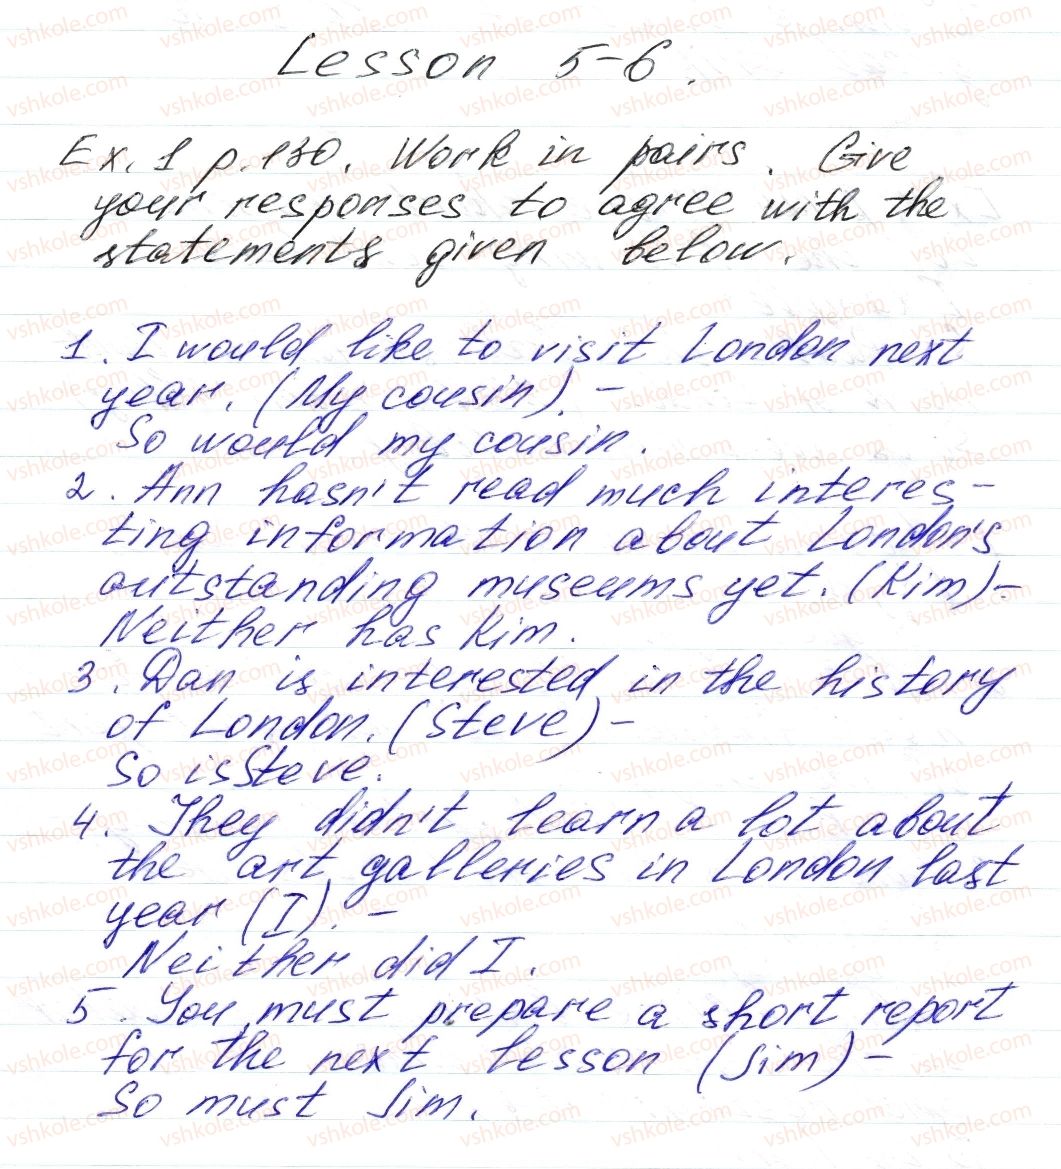 Lesson 5-6.
Ex. 1 p. 130. Work in pairs. Give
your responses to agree with the
statements given below.
1. I would like to visit London next
year. (My cousin). -
So would my cousin.
2. Ann hasn't read much interes-
ting information about London's
outstanding museums yet. (Kim) -
Neither has Kim.
3. Dan is interested in the history
of London. (Steve) -
So is Steve.
4. They didn't learn a lot about
the art galleries in London last
year (I). -
Neither did I.
5. You must prepare a short report
for the next lesson (Jim) -
So must Jim.